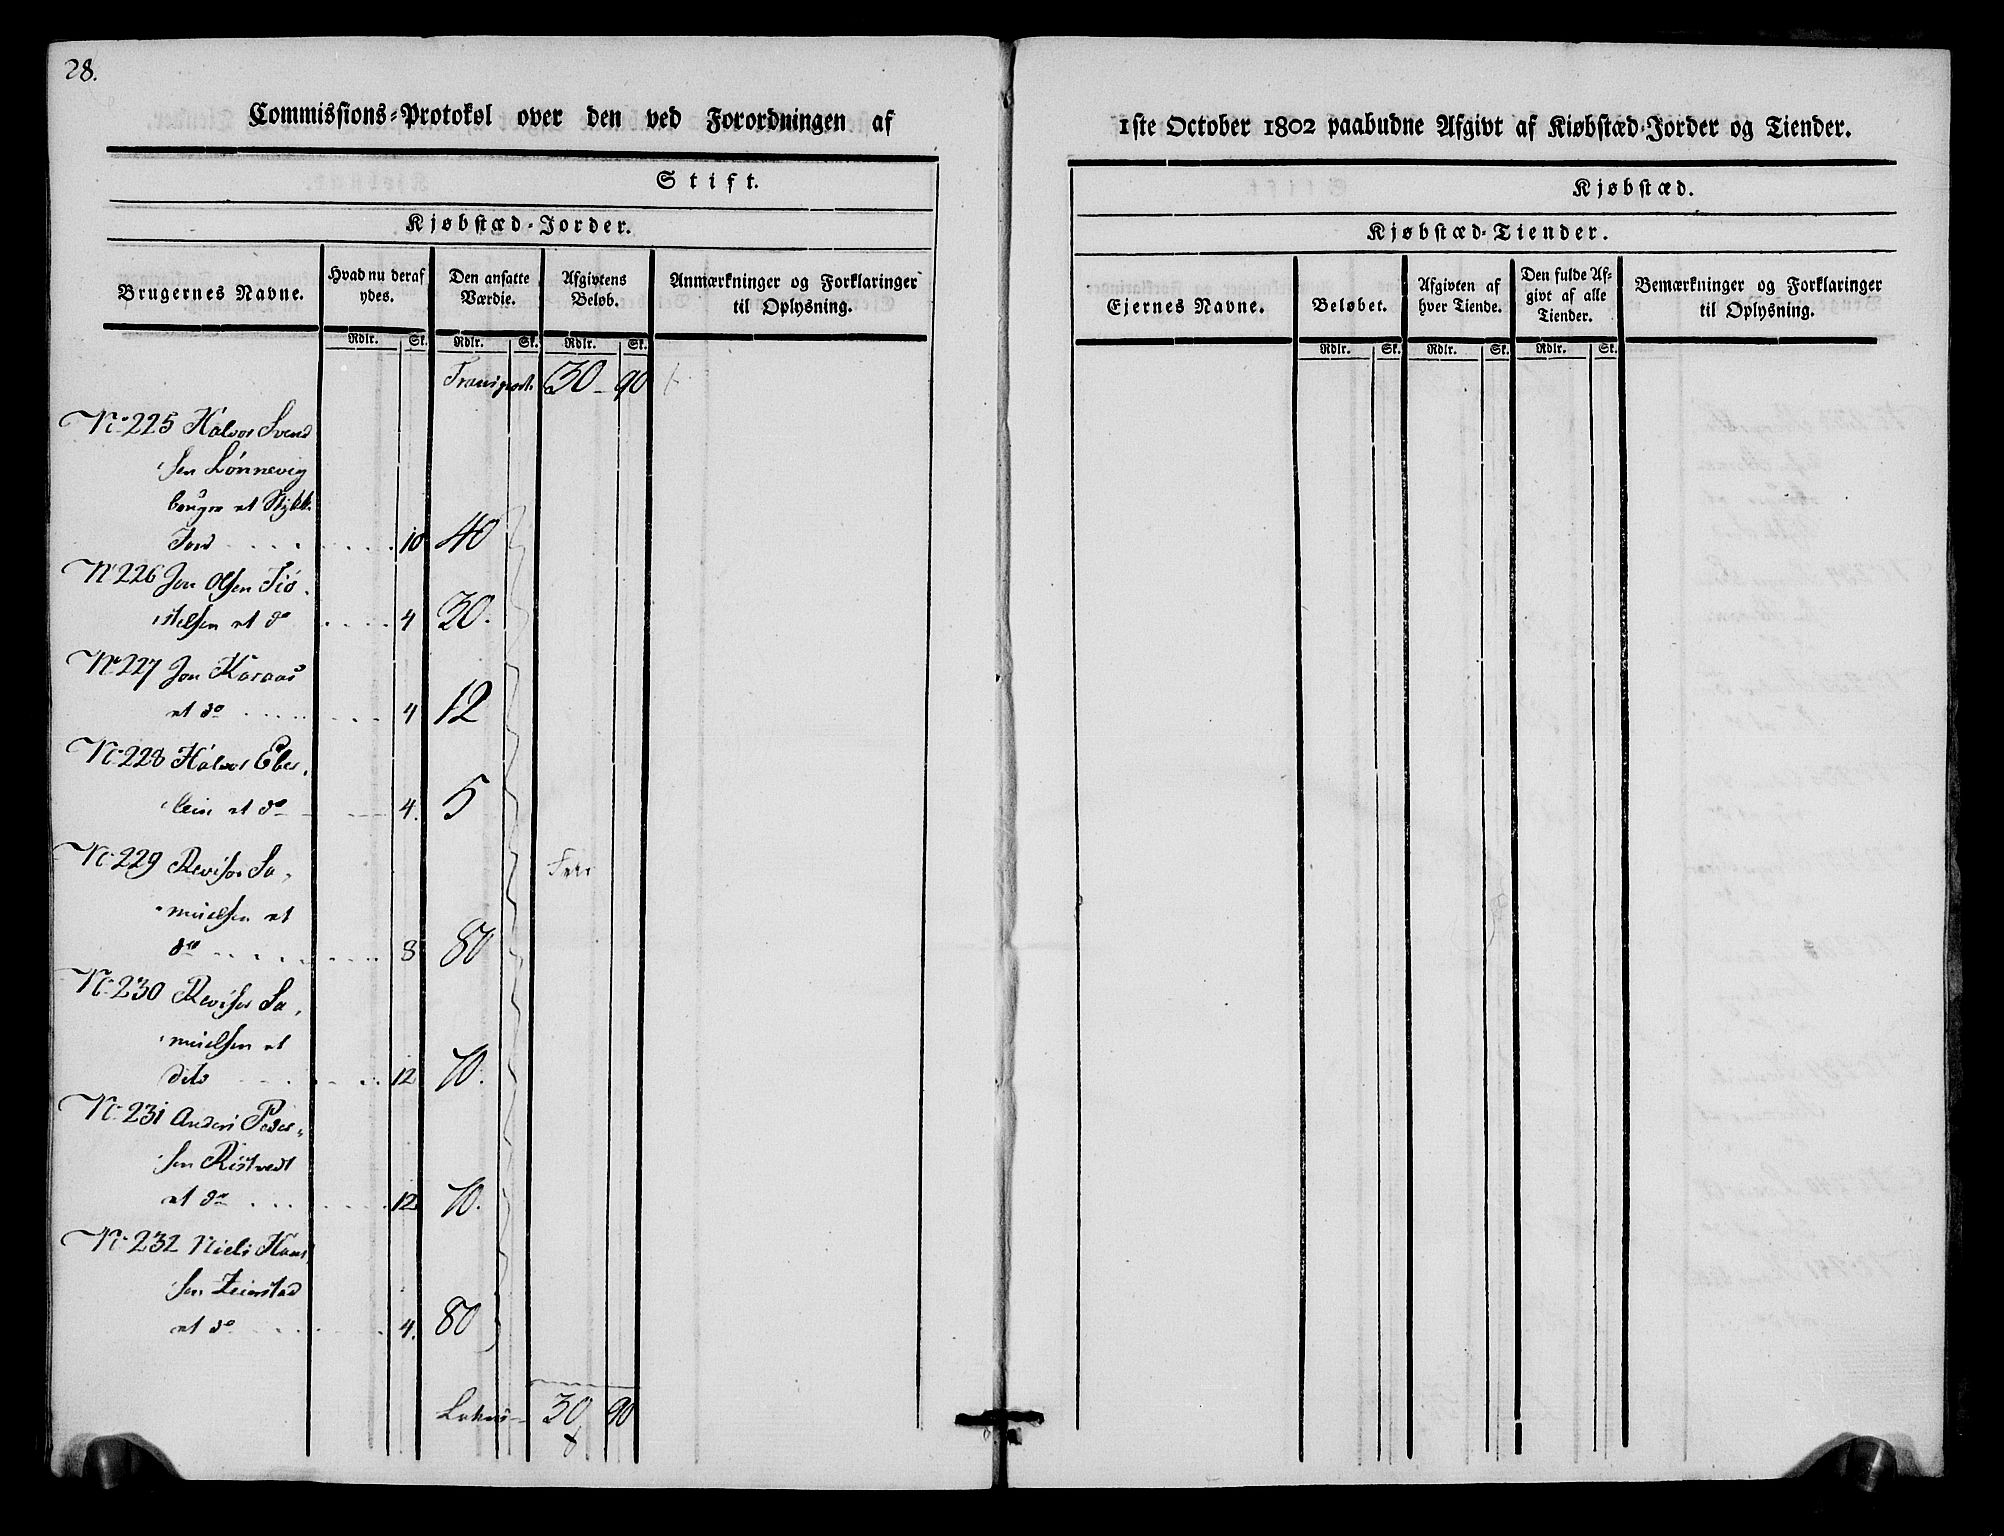 28.
Commissions-Protokol over den ved Forordningen af
1ste October 1802 paabudne Afgivt af Kiøbstæd-Jorder og Tiender.
Stift.
Kjøbstæd-Jorder.
Brugernes Navne.
Hvad nu deraf ydes.
Den ansatte Værdie.
Afgivtens Beløb.
Anmærkninger og Forklaringer til Oplysning.
Rdlr. Sk. Rdlr. Sk. Rdlr. Sk.
Transport 30 90
No 225 Halvor Svend
sen Lönnevig
bruger et Stykk
Jord 10 40
No 226 Jon Olsen Tiö
stelsen et do 4 30.
No 227 Jon Haraas
et do 4 12
No 228 Halvor Eber
lein et do 4. 5
No 229 Revisor Sa
muelsen et
do 8 80
No 230 Revisor Sa
muelsen et
dito 12 70.
No 231 Anders Peder
sen Ristvedt
et do 12 70.
No 232 Niels Hans
sen
et do 4. 80
Lateris 30 90
Kjøbstæd.
Kjøbstæd-Tiender.
Ejernes Navne.
Beløbet.
Afgivten af hver Tiende.
Den fulde Afgivt af alle Tiender.
Bemærkninger og Forklaringer til Oplysning.
Rdlr. Sk. Rdlr. Sk. Rdlr. Sk.